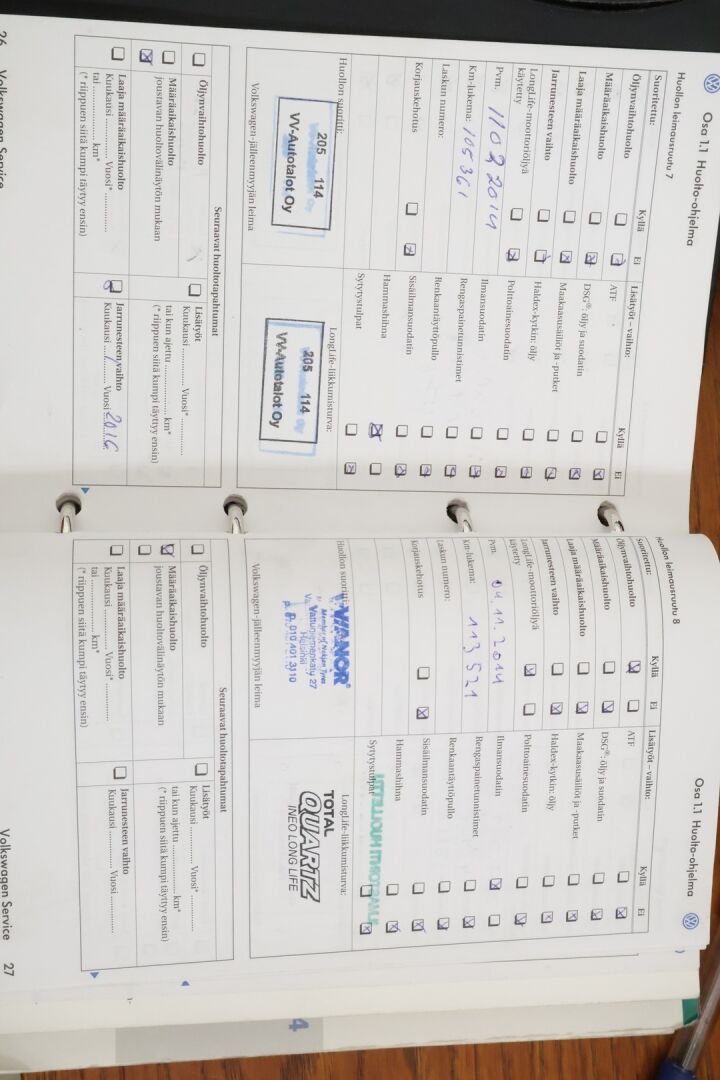 Osa 1.1 Huolto-ohjelma
Huollon leimausruutu 7
Suoritettu: Kyllä Ei
Öljynvaihtohuolto
Määräaikaishuolto
Laaja määräaikaishuolto
Jarrunesteen vaihto
LongLife-moottoriöljyä
käytetty
Pvm. 11 03 2014
Km-lukema: 105361
Laskun numero:
Korjauskehotus
Huollon suoritti:
205 114
VV-Autotalot Oy
Volkswagen-jälleenmyyjän leima
Lisätyöt – vaihto: Kyllä Ei
ATF
DSG®: öljy ja suodatin
Maakaasusäiliöt ja -putket
Haldex-kytkin: öljy
Polttoainesuodatin
Ilmansuodatin
Rengaspainetunnistimet
Renkaantäyttöpullo
Sisäilmansuodatin
Hammashihna
Sytytystulpat
LongLife-liikkumisturva:
205 114
VV-Autotalot Oy
Seuraavat huoltotapahtumat
Öljynvaihtohuolto
Määräaikaishuolto
joustavan huoltovälinäytön mukaan
Laaja määräaikaishuolto
Kuukausi .............. Vuosi* ..............
tai .................... km*
(* riippuen siitä kumpi täyttyy ensin)
Lisätyöt
Kuukausi .............. Vuosi* ..............
tai kun ajettu .............. km*
(* riippuen siitä kumpi täyttyy ensin)
Jarrunesteen vaihto
Kuukausi ...... Vuosi 2016
26 Volkswagen Service
Osa 1.1 Huolto-ohjelma
Huollon leimausruutu 8
Suoritettu: Kyllä Ei
Öljynvaihtohuolto
Määräaikaishuolto
Laaja määräaikaishuolto
Jarrunesteen vaihto
LongLife-moottoriöljyä
käytetty
Pvm. 04.11.2014
Km-lukema: 113521
Laskun numero:
Korjauskehotus
Huollon suoritti:
VIANOR®
Member of Nokian Tyres
Vattuniemenkatu 27
Helsinki
p. 010 401 3110
Volkswagen-jälleenmyyjän leima
Lisätyöt – vaihto: Kyllä Ei
ATF
DSG®: öljy ja suodatin
Maakaasusäiliöt ja -putket
Haldex-kytkin: öljy
Polttoainesuodatin
Ilmansuodatin
Rengaspainetunnistimet
Renkaantäyttöpullo
Sisäilmansuodatin
Hammashihna
Sytytystulpat
LongLife-liikkumisturva:
TOTAL
QUARTZ
INEO LONG LIFE
Seuraavat huoltotapahtumat
Öljynvaihtohuolto
Määräaikaishuolto
joustavan huoltovälinäytön mukaan
Laaja määräaikaishuolto
Kuukausi .............. Vuosi* ..............
tai .................... km*
(* riippuen siitä kumpi täyttyy ensin)
Lisätyöt
Kuukausi .............. Vuosi* ..............
tai kun ajettu .............. km*
(* riippuen siitä kumpi täyttyy ensin)
Jarrunesteen vaihto
Kuukausi .............. Vuosi ..............
Volkswagen Service 27
4